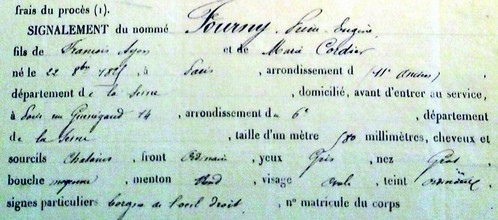 frais du procès (1).
SIGNALEMENT du nommé Fourny, Eugène
fils de François et de Maria Cordier
né le 22 8bre, à Paris, arrondissement d (11e ancien)
département de la Seine, domicilié, avant d'entrer au service,
à Paris 14, arrondissement du 6e, département
de la Seine, taille d'un mètre 580 millimètres, cheveux et
sourcils Chatains, front Ordinaire, yeux Gris, nez Gros
bouche moyenne, menton Rond, visage ovale, teint ordinaire
signes particuliers borgne de l'oeil droit, n° matricule du corps